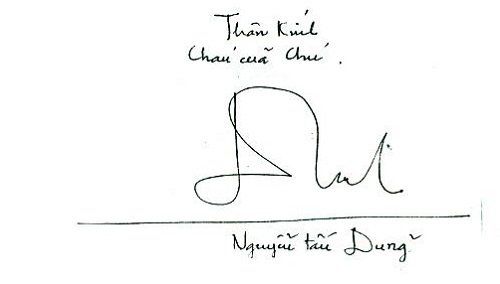 Thân Kính
Cháu của Chú .
Nguyễn Tấn Dũng